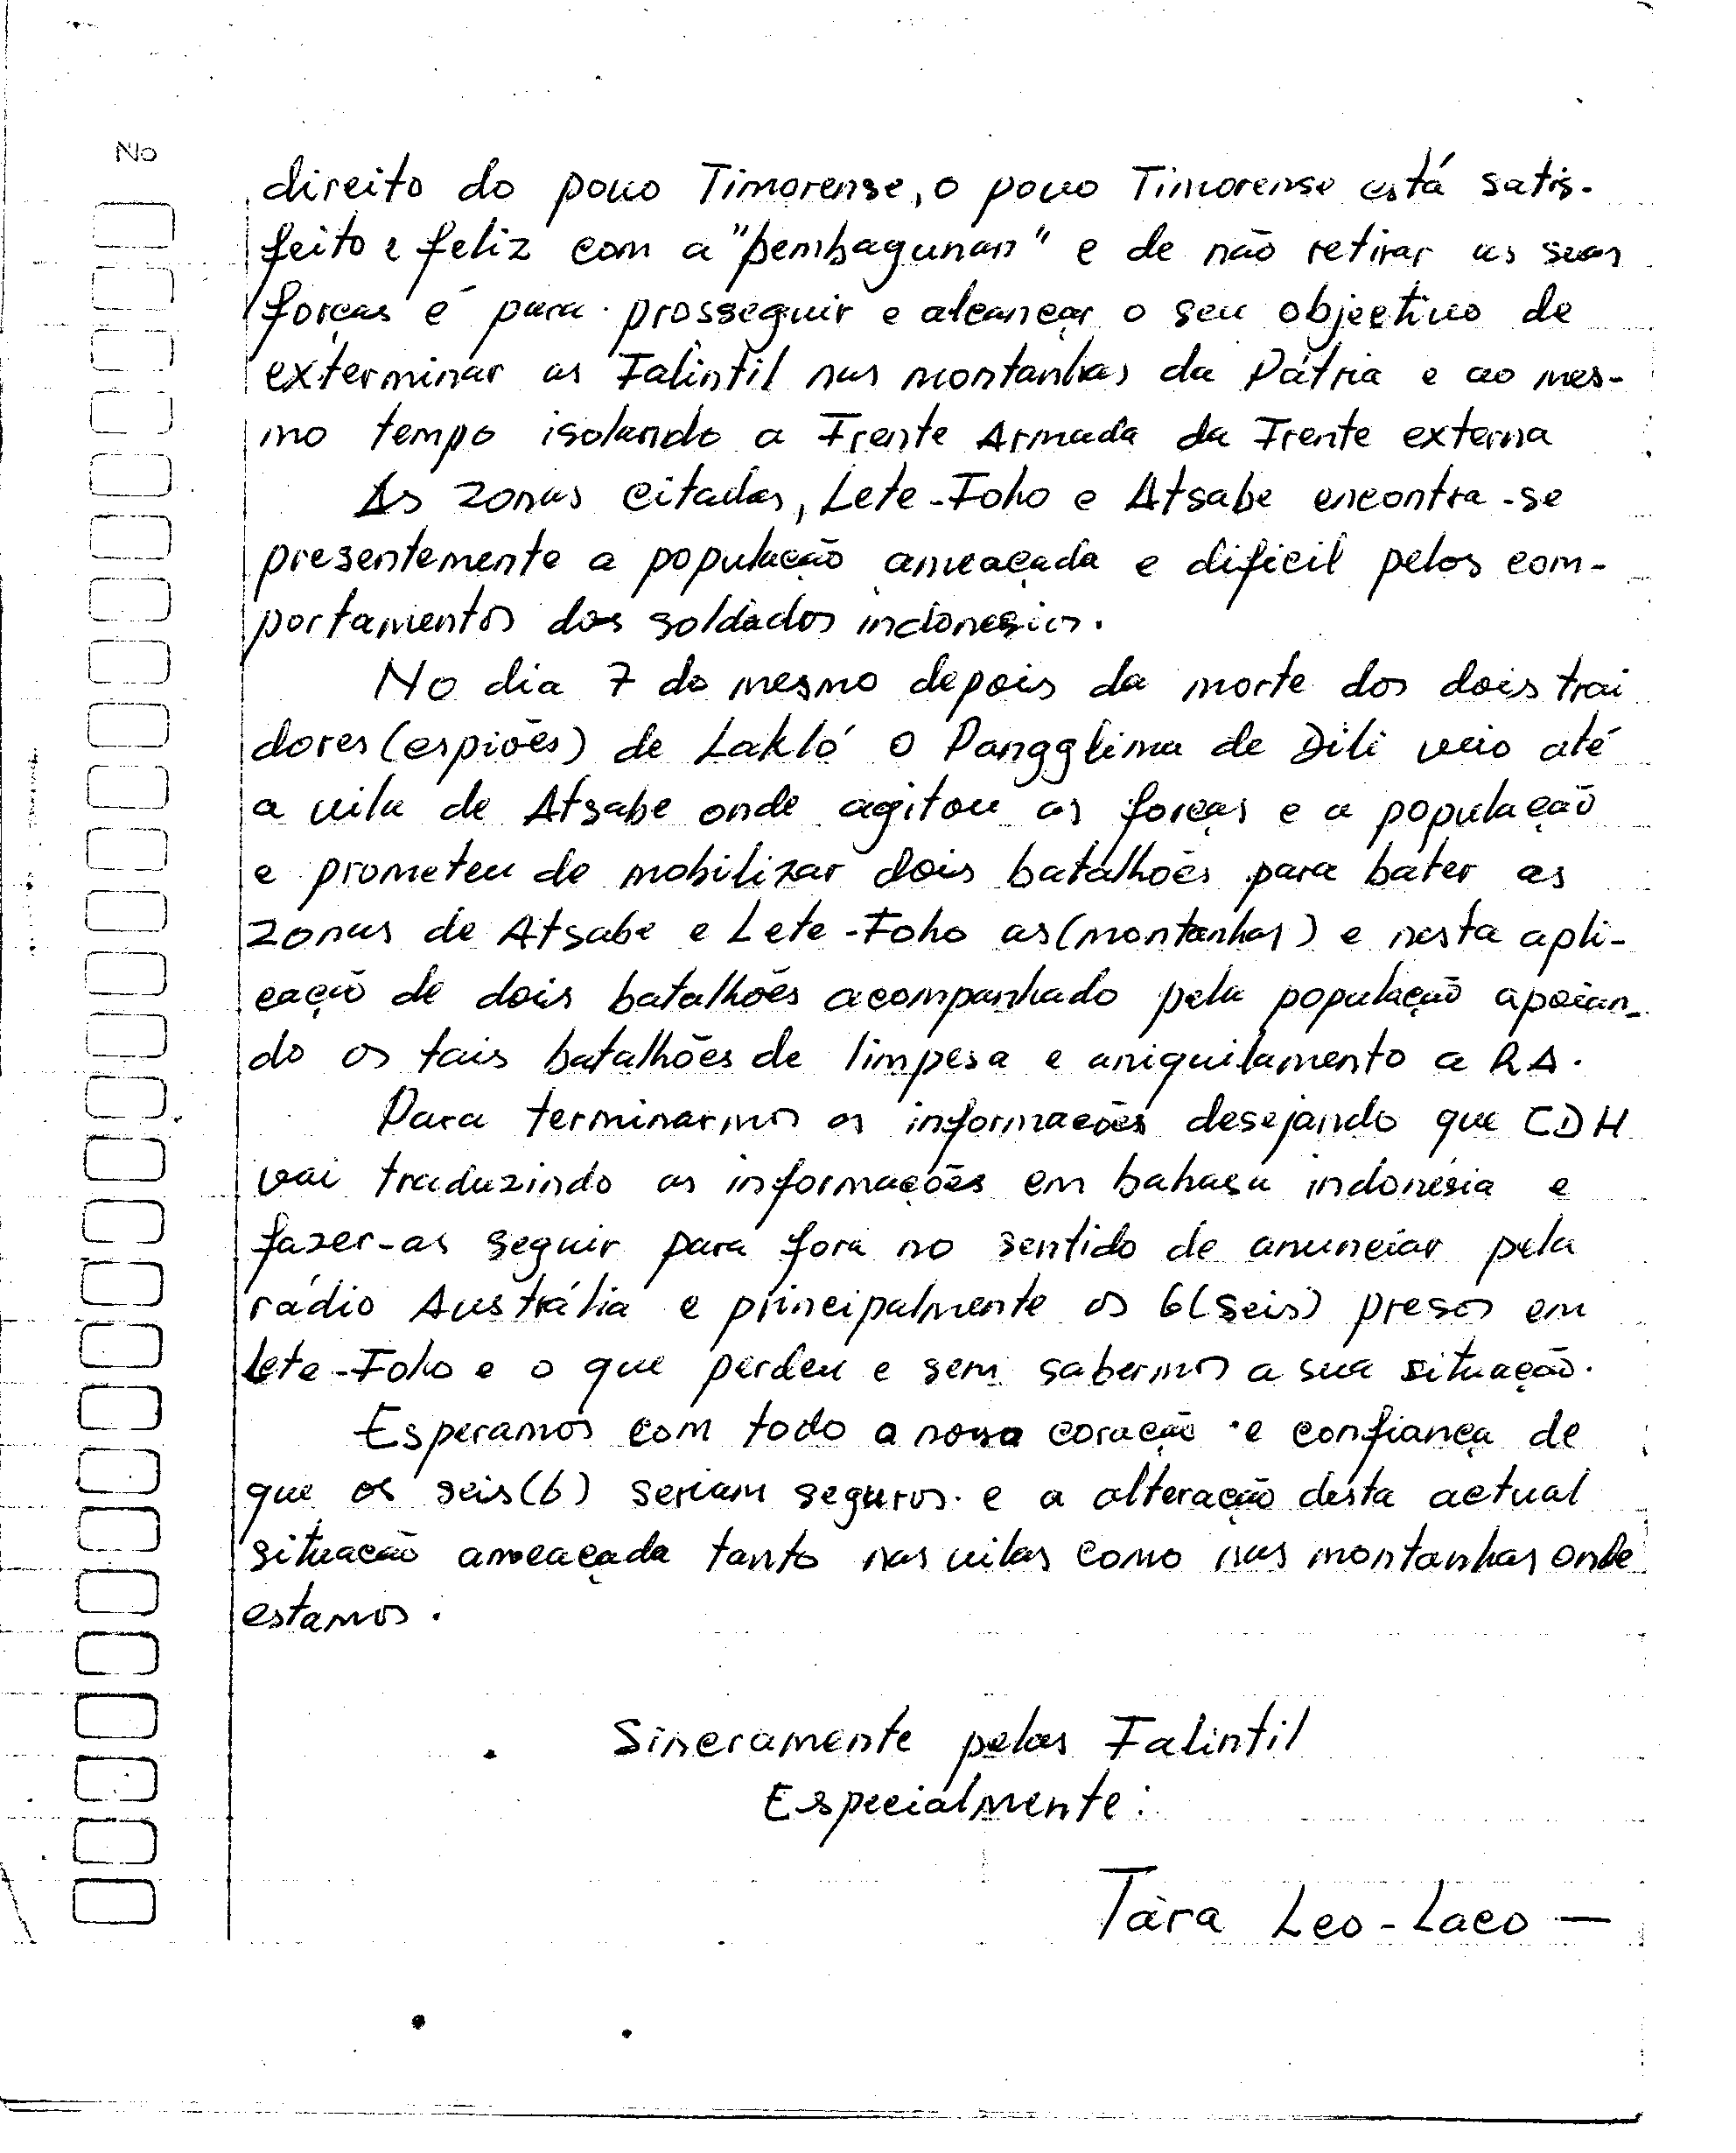 No
direito do povo Timorense, o povo Timorense está satis-
feito e feliz com a "pembagunan" e de não retirar as suas
forças é para prosseguir e alcançar o seu objectivo de
exterminar as Falintil nas montanhas da Pátria e ao mes-
mo tempo isolando a Frente Armada da Frente externa
As zonas citadas, Lete-Foho e Atsabe encontra-se
presentemente a população ameaçada e dificil pelos com-
portamentos dos soldados indonesios.
No dia 7 do mesmo depois da morte dos dois trai
dores (espiões) de Lakló o Pangglima de Dili veio até
a vila de Atsabe onde agitou as forças e a população
e prometeu de mobilizar dois batalhões para bater as
zonas de Atsabe e Lete-Foho as (montanhas) e nesta apli-
cação de dois batalhões acompanhado pela população apoian-
do os tais batalhões de limpesa e aniquilamento a RA.
Para terminarmos as informações desejando que CDH
vai traduzindo as informações em bahasa indonésia e
fazer-as seguir para fora no sentido de anunciar pela
rádio Austrália e principalmente os 6 (seis) presos em
Lete-Foho e o que perdeu e sem sabermos a sua situação.
Esperamos com todo a nossa coração e confiança de
que os seis (6) seriam seguros e a alteração desta actual
situação ameaçada tanto nas vilas como nas montanhas onde
estamos.
Sinceramente pelas Falintil
Especialmente:
Tàra Leo-Laco —